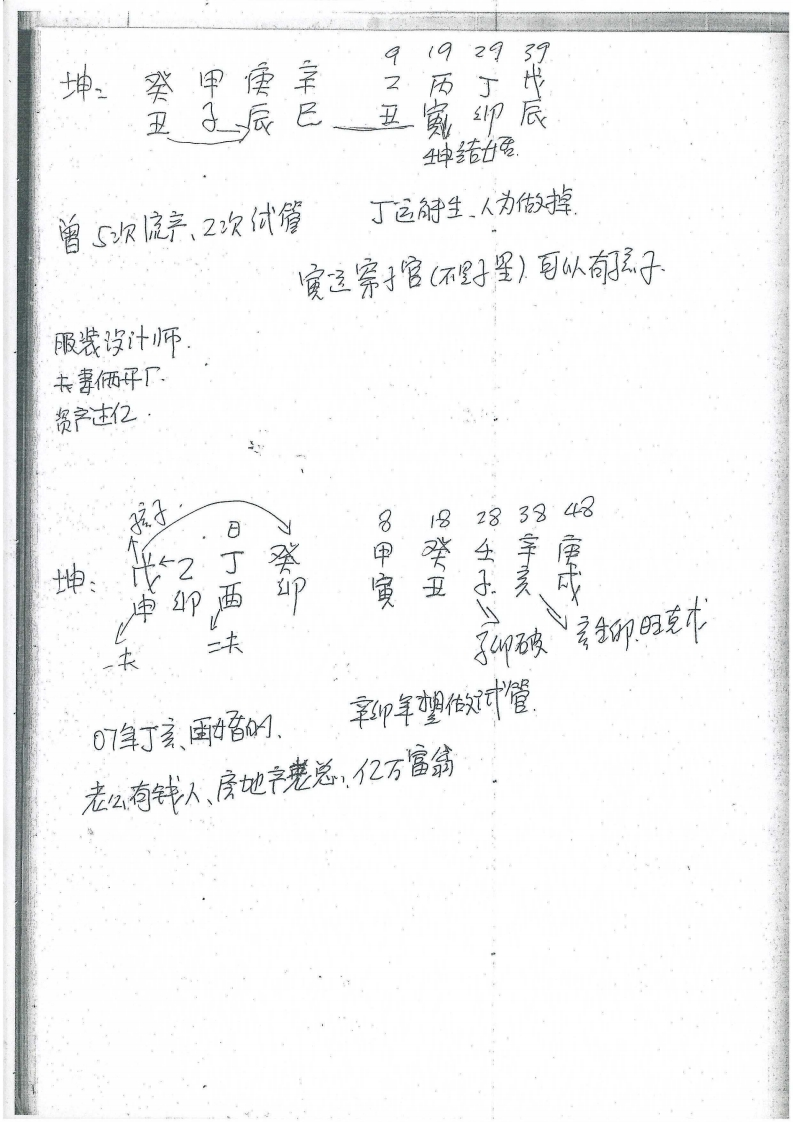 9 19 29 39
坤: 癸 甲 庚 辛 乙 丙 丁 戊
丑 子 辰 巳 丑 寅 卯 辰
结婚
曾5次流产、2次试管 丁运能生、人为做掉.
寅运穿子宫(不是子星).可以有孩子.
服装设计师.
夫妻俩开厂.
资产过亿.
孩子. 日 8 18 28 38 48
坤: 戊 乙 丁 癸 甲 癸 壬 辛 庚
申 卯 酉 卯 寅 丑 子 亥 戌
一夫 二夫 子卯破 亥生卯.旺克戊
07年丁亥、离婚的. 辛卯年想做试管.
老公有钱人、房地产老总、亿万富翁